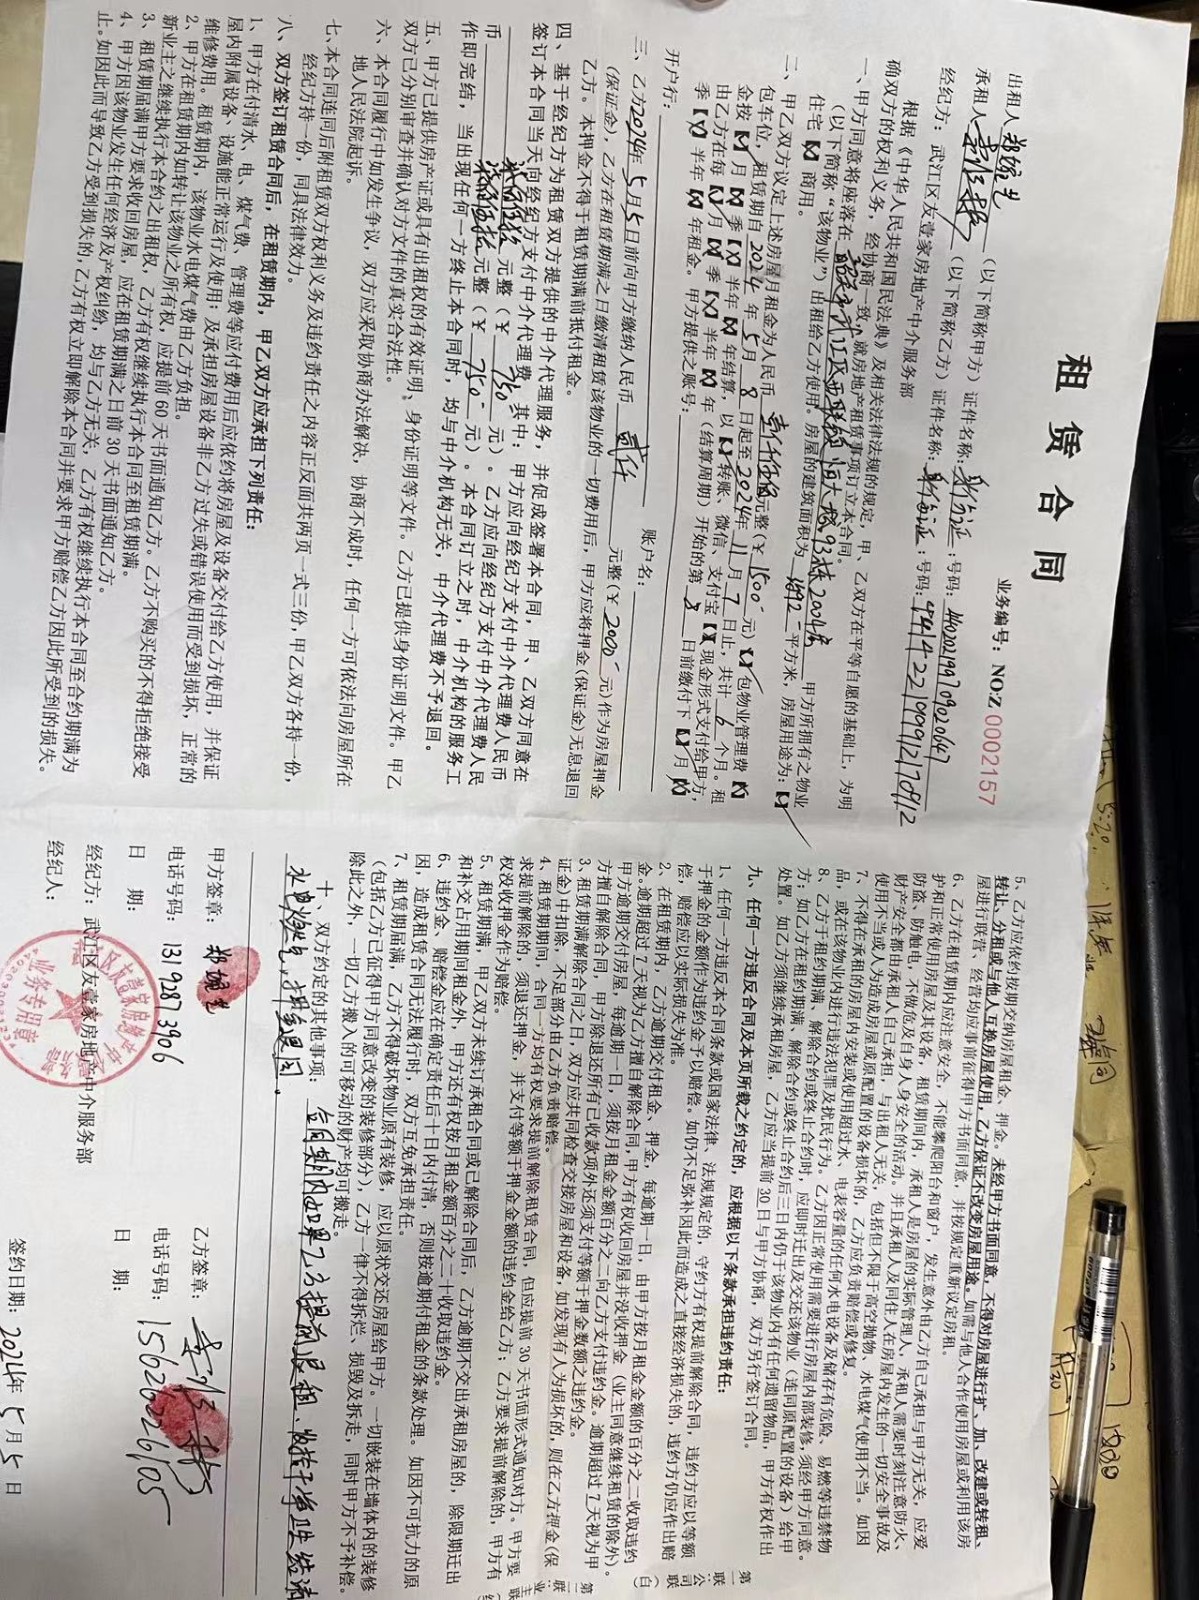 租赁合同
业务编号：NO:Z 0002157
出租人 郑婉芝 （以下简称甲方）证件名称：身份证：号码：440202199709020647
承租人 （以下简称乙方）证件名称：身份证：号码：
经纪方：武江区友壹家房地产中介服务部
根据《中华人民共和国民法典》及相关法律法规的规定，甲、乙双方在平等自愿的基础上，为明
确双方的权利义务，经协商一致，就房地产租赁事项订立本合同。
一、甲方同意将座落在 武江区 恒大城93栋2004房 甲方所拥有之物业
（以下简称“该物业”）出租给乙方使用。房屋的建筑面积为 平方米，房屋用途为：【 】
住宅【 】商用。
二、甲乙双方议定上述房屋月租金为人民币 壹仟伍佰 元整（￥1500-元）【 】包物业管理费【 】
包车位，租赁期自2024年5月8日起至2024年11月7日止，共计6个月。租
金按【 】月【 】季【 】半年【 】年结算，以【 】转账、微信、支付宝【 】现金形式支付给甲方，
由乙方在每【 】月【 】季【 】半年【 】年（结算周期）开始的第 8 日前缴付下【 】月【 】
季【 】半年【 】年租金。甲方提供之账号：
开户行： 账户名：
三、乙方2024年5月5日前向甲方缴纳人民币 贰仟 元整（￥2000-元）作为房屋押金
（保证金），乙方在租赁期满之日缴清租赁该物业的一切费用后，甲方应将押金（保证金）无息退回
乙方。本押金不得于租赁期满前抵付租金。
四、基于经纪方为租赁双方提供的中介代理服务，并促成签署本合同，甲、乙双方同意在
签订本合同当天向经纪方支付中介代理费，其中：甲方应向经纪方支付中介代理费人民币
元整（￥750-元）。乙方应向经纪方支付中介代理费人民
币 元整（￥750-元）。本合同订立之时，中介机构的服务工
作即完结，当出现任何一方终止本合同时，均与中介机构无关，中介代理费不予退回。
五、甲方已提供房产证或具有出租权的有效证明、身份证明等文件。乙方已提供身份证明文件。甲乙
双方已分别审查并确认对方文件的真实合法性。
六、本合同履行中如发生争议，双方应采取协商办法解决，协商不成时，任何一方可依法向房屋所在
地人民法院起诉。
七、本合同连同后附租赁双方权利义务及违约责任之内容正反面共两页一式三份，甲乙双方各持一份，
经纪方持一份，同具法律效力。
八、双方签订租赁合同后，在租赁期内，甲乙双方应承担下列责任：
1、甲方在付清水、电、煤气费、管理费等应付费用后应依约将房屋及设备交付给乙方使用，并保证
屋内附属设备、设施能正常运行及使用；及承担房屋设备非乙方过失或错误使用而受到损坏，正常的
维修费用。租赁期内，该物业水电煤气费由乙方负担。
2、甲方在租赁期内如转让该物业之所有权，应提前60天书面通知乙方。乙方不购买的不得拒绝接受
新业主之继续执行本合约之出租权，乙方有权继续执行本合同至租赁期满。
3、租赁期届满甲方要求收回房屋，应在租赁期满之日前30天书面通知乙方。
4、甲方因该物业发生任何经济及产权纠纷，均与乙方无关，乙方有权继续执行本合同至合约期满为
止。如因此而导致乙方受到损失的，乙方有权立即解除本合同并要求甲方赔偿乙方因此所受到的损失。
5、乙方应依约按期交纳房屋租金、押金。未经甲方书面同意，不得对房屋进行扩、加、改建或转租、
转让、分租或与他人互换房屋使用，乙方保证不改变房屋用途。如需与他人合作使用房屋或利用该房
屋进行联营、经营均应事前征得甲方书面同意，并按规定重新议定房租。
6、乙方在租赁期内应注意安全，不能攀爬阳台和窗户，发生意外由乙方自己承担与甲方无关，应爱
护和正常使用房屋及其设备，租赁期间内，承租人是房屋的实际管理人，承租人需要时刻注意防火、
防盗、防触电，不做危及自身人身安全的活动。并且承租人及同住人在房屋内发生的一切安全事故及
财产安全都由承租人自己承担，与出租人无关，包括但不限于高空抛物、水电煤气使用不当。如因
使用不当或人为造成房屋或原配置的设备损坏的，乙方应负责赔偿或修复。
7、不得在承租的房屋内安装或使用超过水、电表容量的任何水电设备及储存有危险、易燃等违禁物
品，或在该物业内进行违法犯罪及扰民行为。乙方因正常使用需要进行房屋内部装修，须经甲方同意。
8、乙方于租约期满、解除合约或终止合约时，应即时迁出及交还该物业（连同原配置的设备）给甲
方；如乙方在租约期满、解除合约或终止合约后三日内仍于该物业内有任何遗留物品，甲方有权作出
处置。如乙方须继续承租房屋，乙方应当提前30日与甲方协商，双方另行签订合同。
九、任何一方违反合同及本页所载之约定的，应根据以下条款承担违约责任：
1、任何一方违反本合同条款或国家法律、法规规定的，守约方有权提前解除合同，违约方应以等额
于押金的金额作为违约金予以赔偿。如仍不足弥补因此而造成之直接经济损失的，违约方仍应作出赔
偿，赔偿应以实际损失为准。
2、在租赁期内，乙方逾期交付租金、押金，每逾期一日，由甲方按月租金金额的百分之二收取违约
金。逾期超过7天视为乙方擅自解除合同，甲方有权收回房屋并没收押金（业主同意继续租赁的除外）。
甲方逾期交付房屋，每逾期一日，须按月租金金额百分之二向乙方支付违约金。逾期超过7天视为甲
方擅自解除合同，甲方除退还所有已收款项外还须支付等额于押金数额之违约金。
3、租赁期满解除合同之日，双方应共同检查交接房屋和设备，如发现有人为损坏的，则在乙方押金（保
证金）中扣除，不足部分由乙方负责赔偿。
4、租赁期期间，合同一方均有权要求提前解除租赁合同，但应提前30天书面形式通知对方。甲方要
求提前解除的，须退还押金，并支付等额于押金金额的违约金给乙方；乙方要求提前解除的，甲方有
权没收押金作为赔偿。
5、租赁期满，甲乙双方未续订承租合同或已解除合同后，乙方逾期不交出承租房屋的，除限期迁出
和补交占用期间租金外，甲方还有权按月租金额百分之二十收取违约金。
6、违约金、赔偿金应在确定责任后十日内付清，否则按逾期付租金的条款处理。如因不可抗力的原
因，造成租赁合同无法履行时，双方互免承担责任。
7、租赁期届满，乙方不得破坏物业原有装修，应以原状交还房屋给甲方。一切嵌装在墙体内的装修
（包括乙方已征得甲方同意改变的装修部分），乙方一律不得拆烂、损毁及拆走，同时甲方不予补偿。
除此之外，一切乙方搬入的可移动的财产均可搬走。
十、双方约定的其他事项： 合同期内如果乙方提前退租、 打 卫生 结清
水电燃气，押金退回。
甲方签章： 郑婉芝
电话号码： 13192873906
日 期：
经纪方：武江区友壹家房地产中介服务部
经纪人：
乙方签章：
电话号码： 15626226105
日 期：
签约日期：2024年5月5日
业务专用章